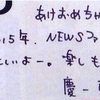 あけおめちゃ
15年. NEWSファ
いいよー。楽しも
慶一